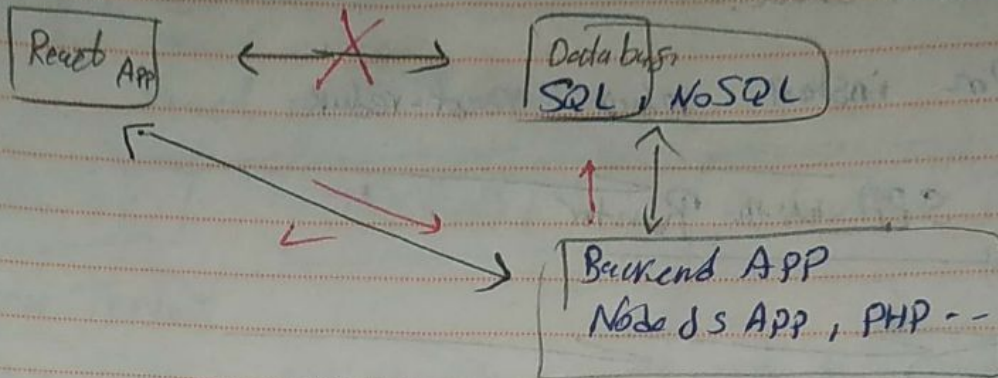 React
App
Database
SQL, NoSQL
Backend APP
Node Js App, PHP --